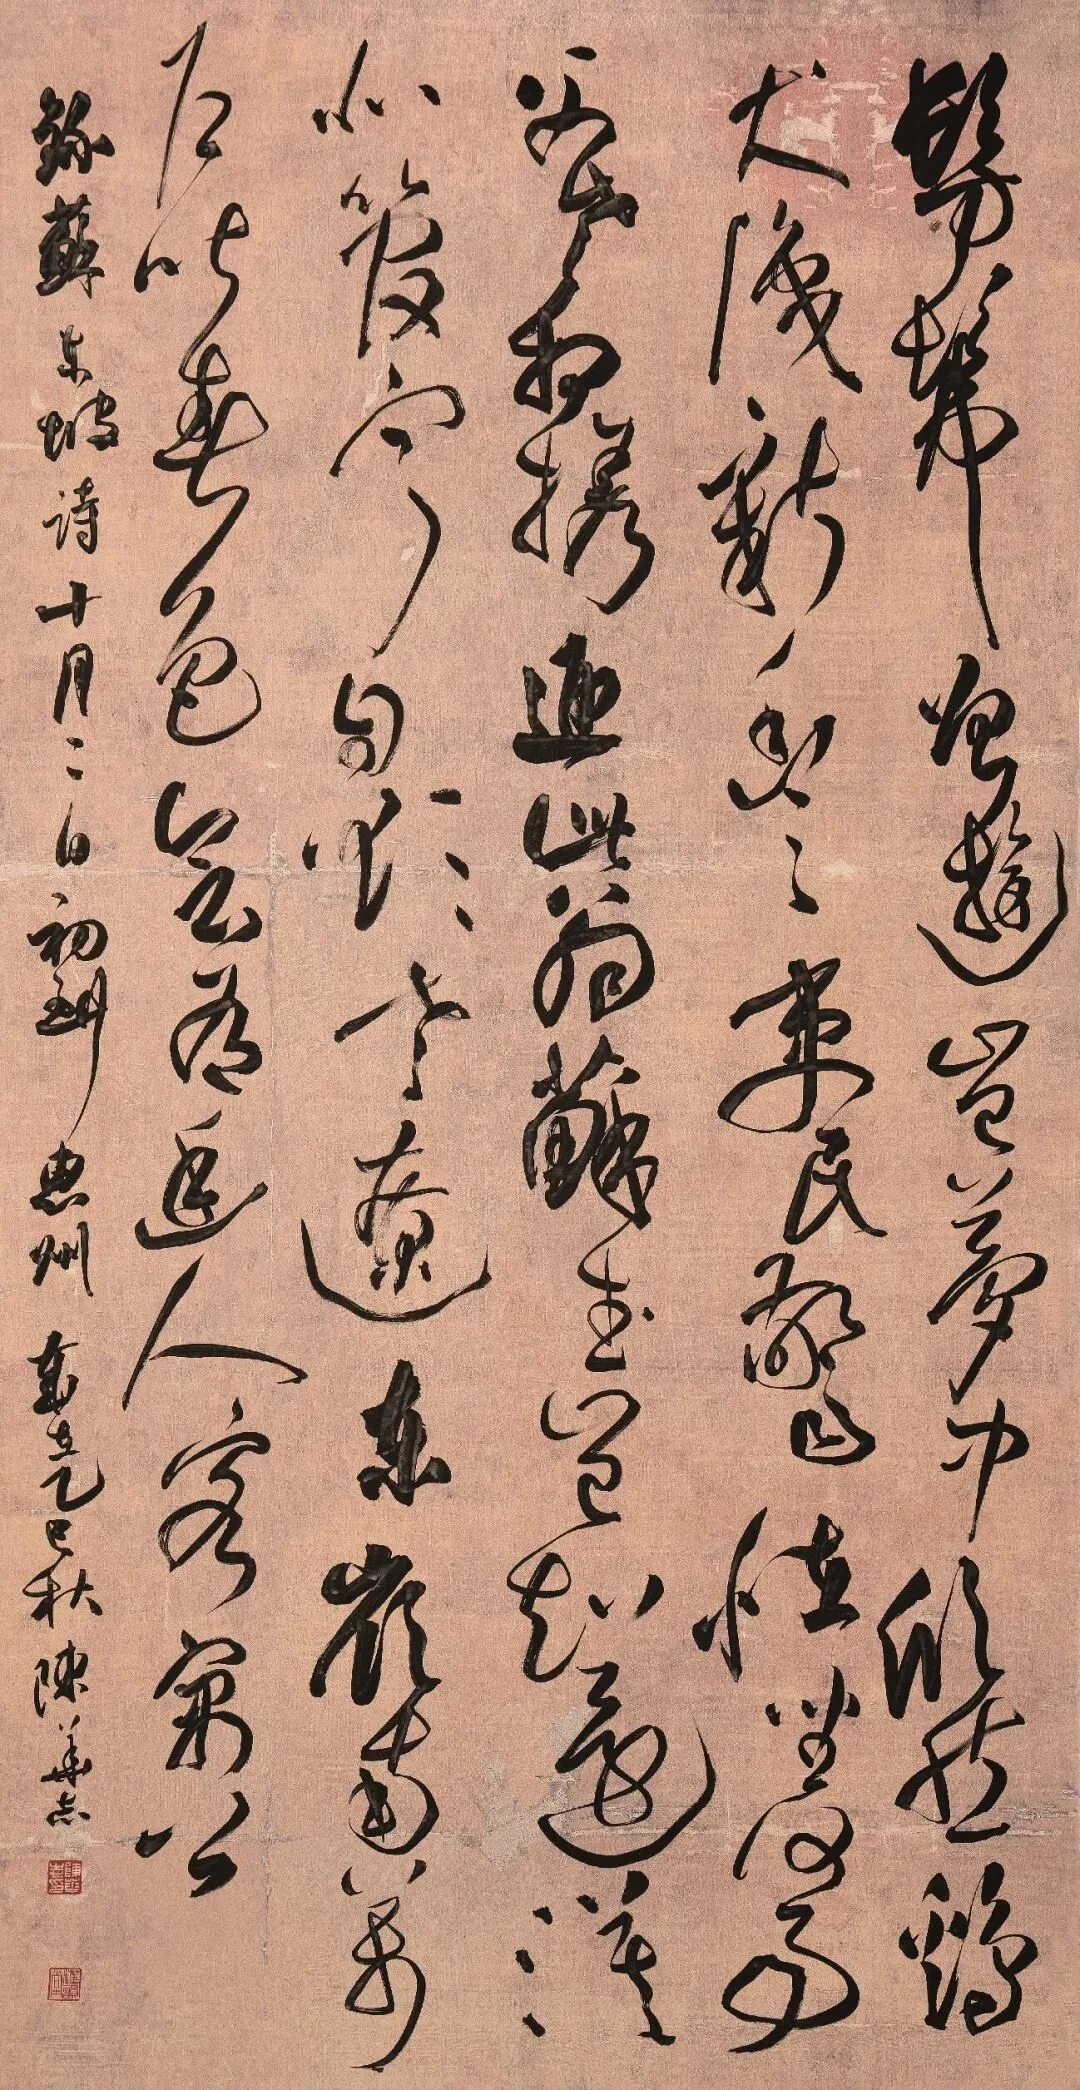 髣髴曾遊豈夢中欣然鷄
犬識新豐吏民驚怪坐何事
父老相攜迎此翁蘇武豈知還漠
北管寧自欲老遼東嶺南萬
戶皆春色會有幽人客寓公
錄蘇東坡詩十月二日初到惠州歲在乙巳秋陳華志